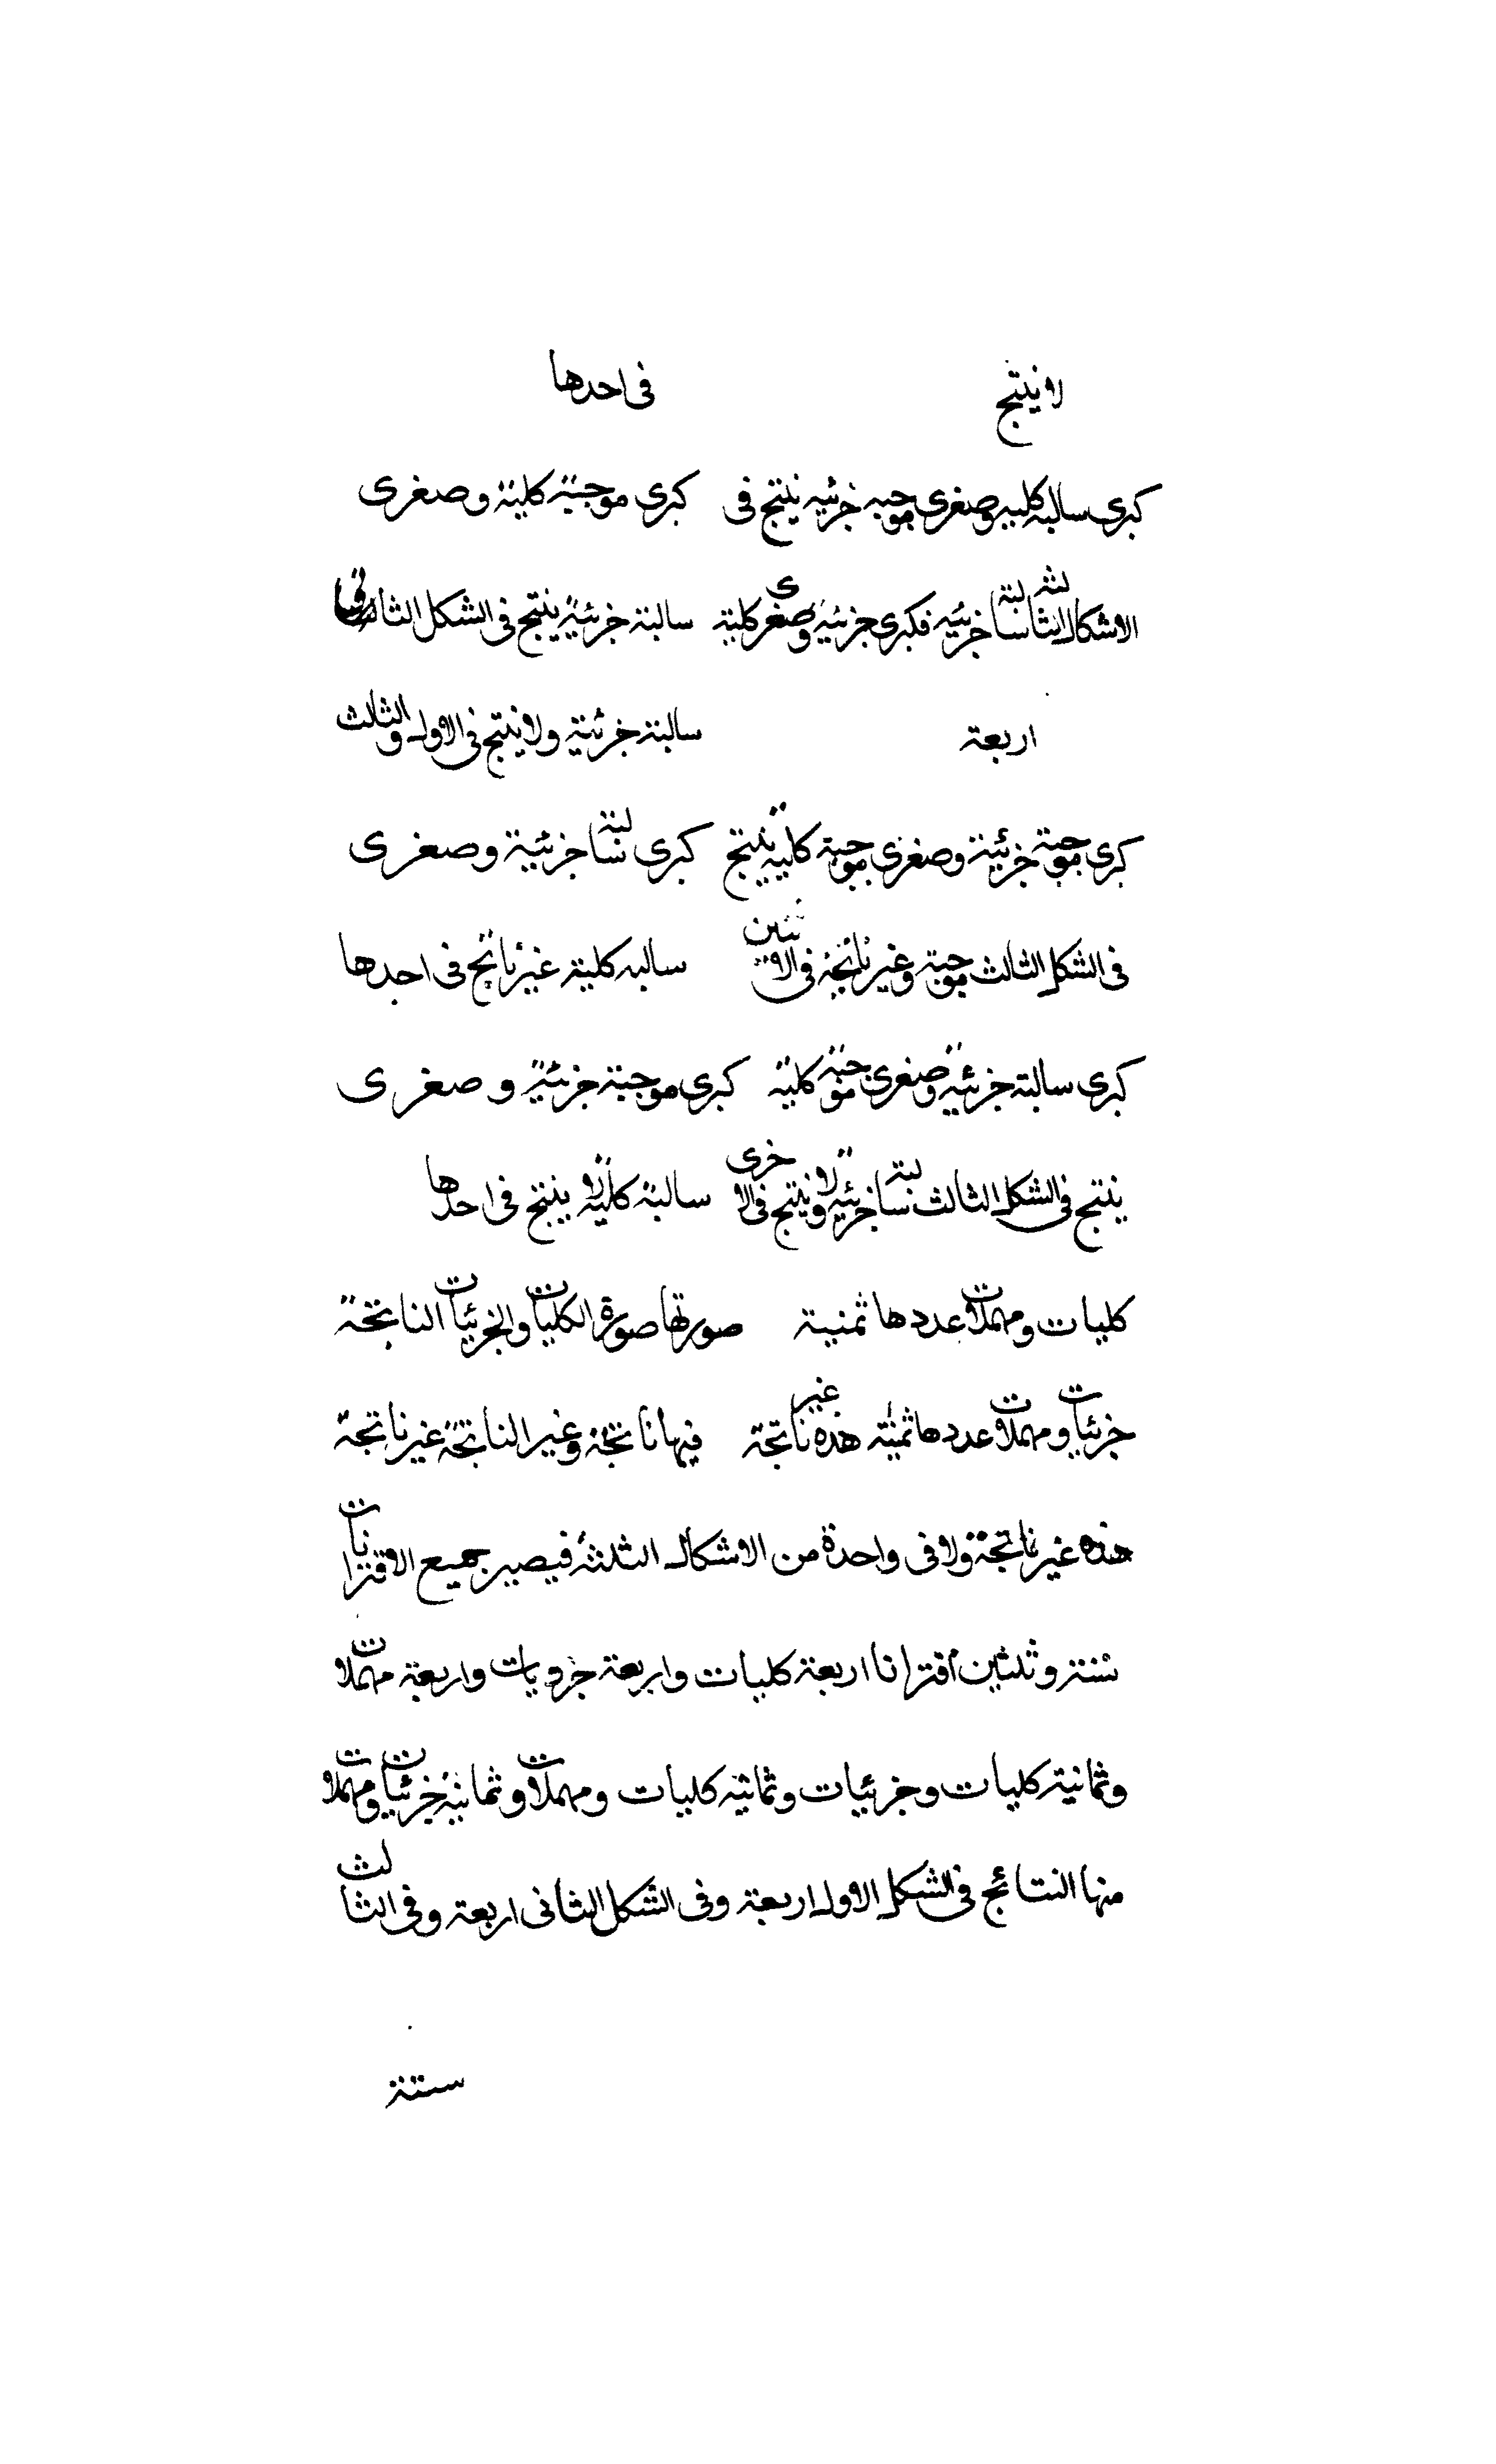 لا ينتج في احدها
كبرى سالبه كليه وصغرى موجبه جزئيه ينتج في كبرى موجبة كلية وصغرى
الاشكال الثالثة سالبة جزئيه فكبرى جزئية وصغرى كلية سالبة جزئية ينتج في الشكل الثاني
اربعة سالبة جزئية ولا ينتج في الاول والثالث
كبرى موجبة جزئية وصغرى موجبة كليه ينتج كبرى سالبة جزئية وصغرى
في الشكل الثالث موجبة وغير ناتجة في الاثنين سالبه كلية غير ناتج في احدها
كبرى سالبة جزئية وصغرى موجبة كلية كبرى موجبة جزئية وصغرى
ينتج في الشكل الثالث سالبة جزئية ولا ينتج في الاخرى سالبة كلية لا ينتج في احدها
كليات ومهملات عددها ثمنية صورتها صورة الكليات والجزئيات الناتجة
جزئيات ومهملات عددها ثمنية هذه غير ناتجة فيها ناتجة وغير الناتجة غير ناتجة
هذه غير ناتجة ولا في واحدة من الاشكال الثلثة فيصير جميع الاقترانات
ستة وثلثين اقترانا اربعة كليات واربعة جزويات واربعة مهملات
وثمانية كليات وجزئيات وثمانية كليات ومهملات وثمانية جزئيات ومهملات
منها النتائج في الشكل الاول اربعة وفي الشكل الثاني اربعة وفي الثالث
ستة